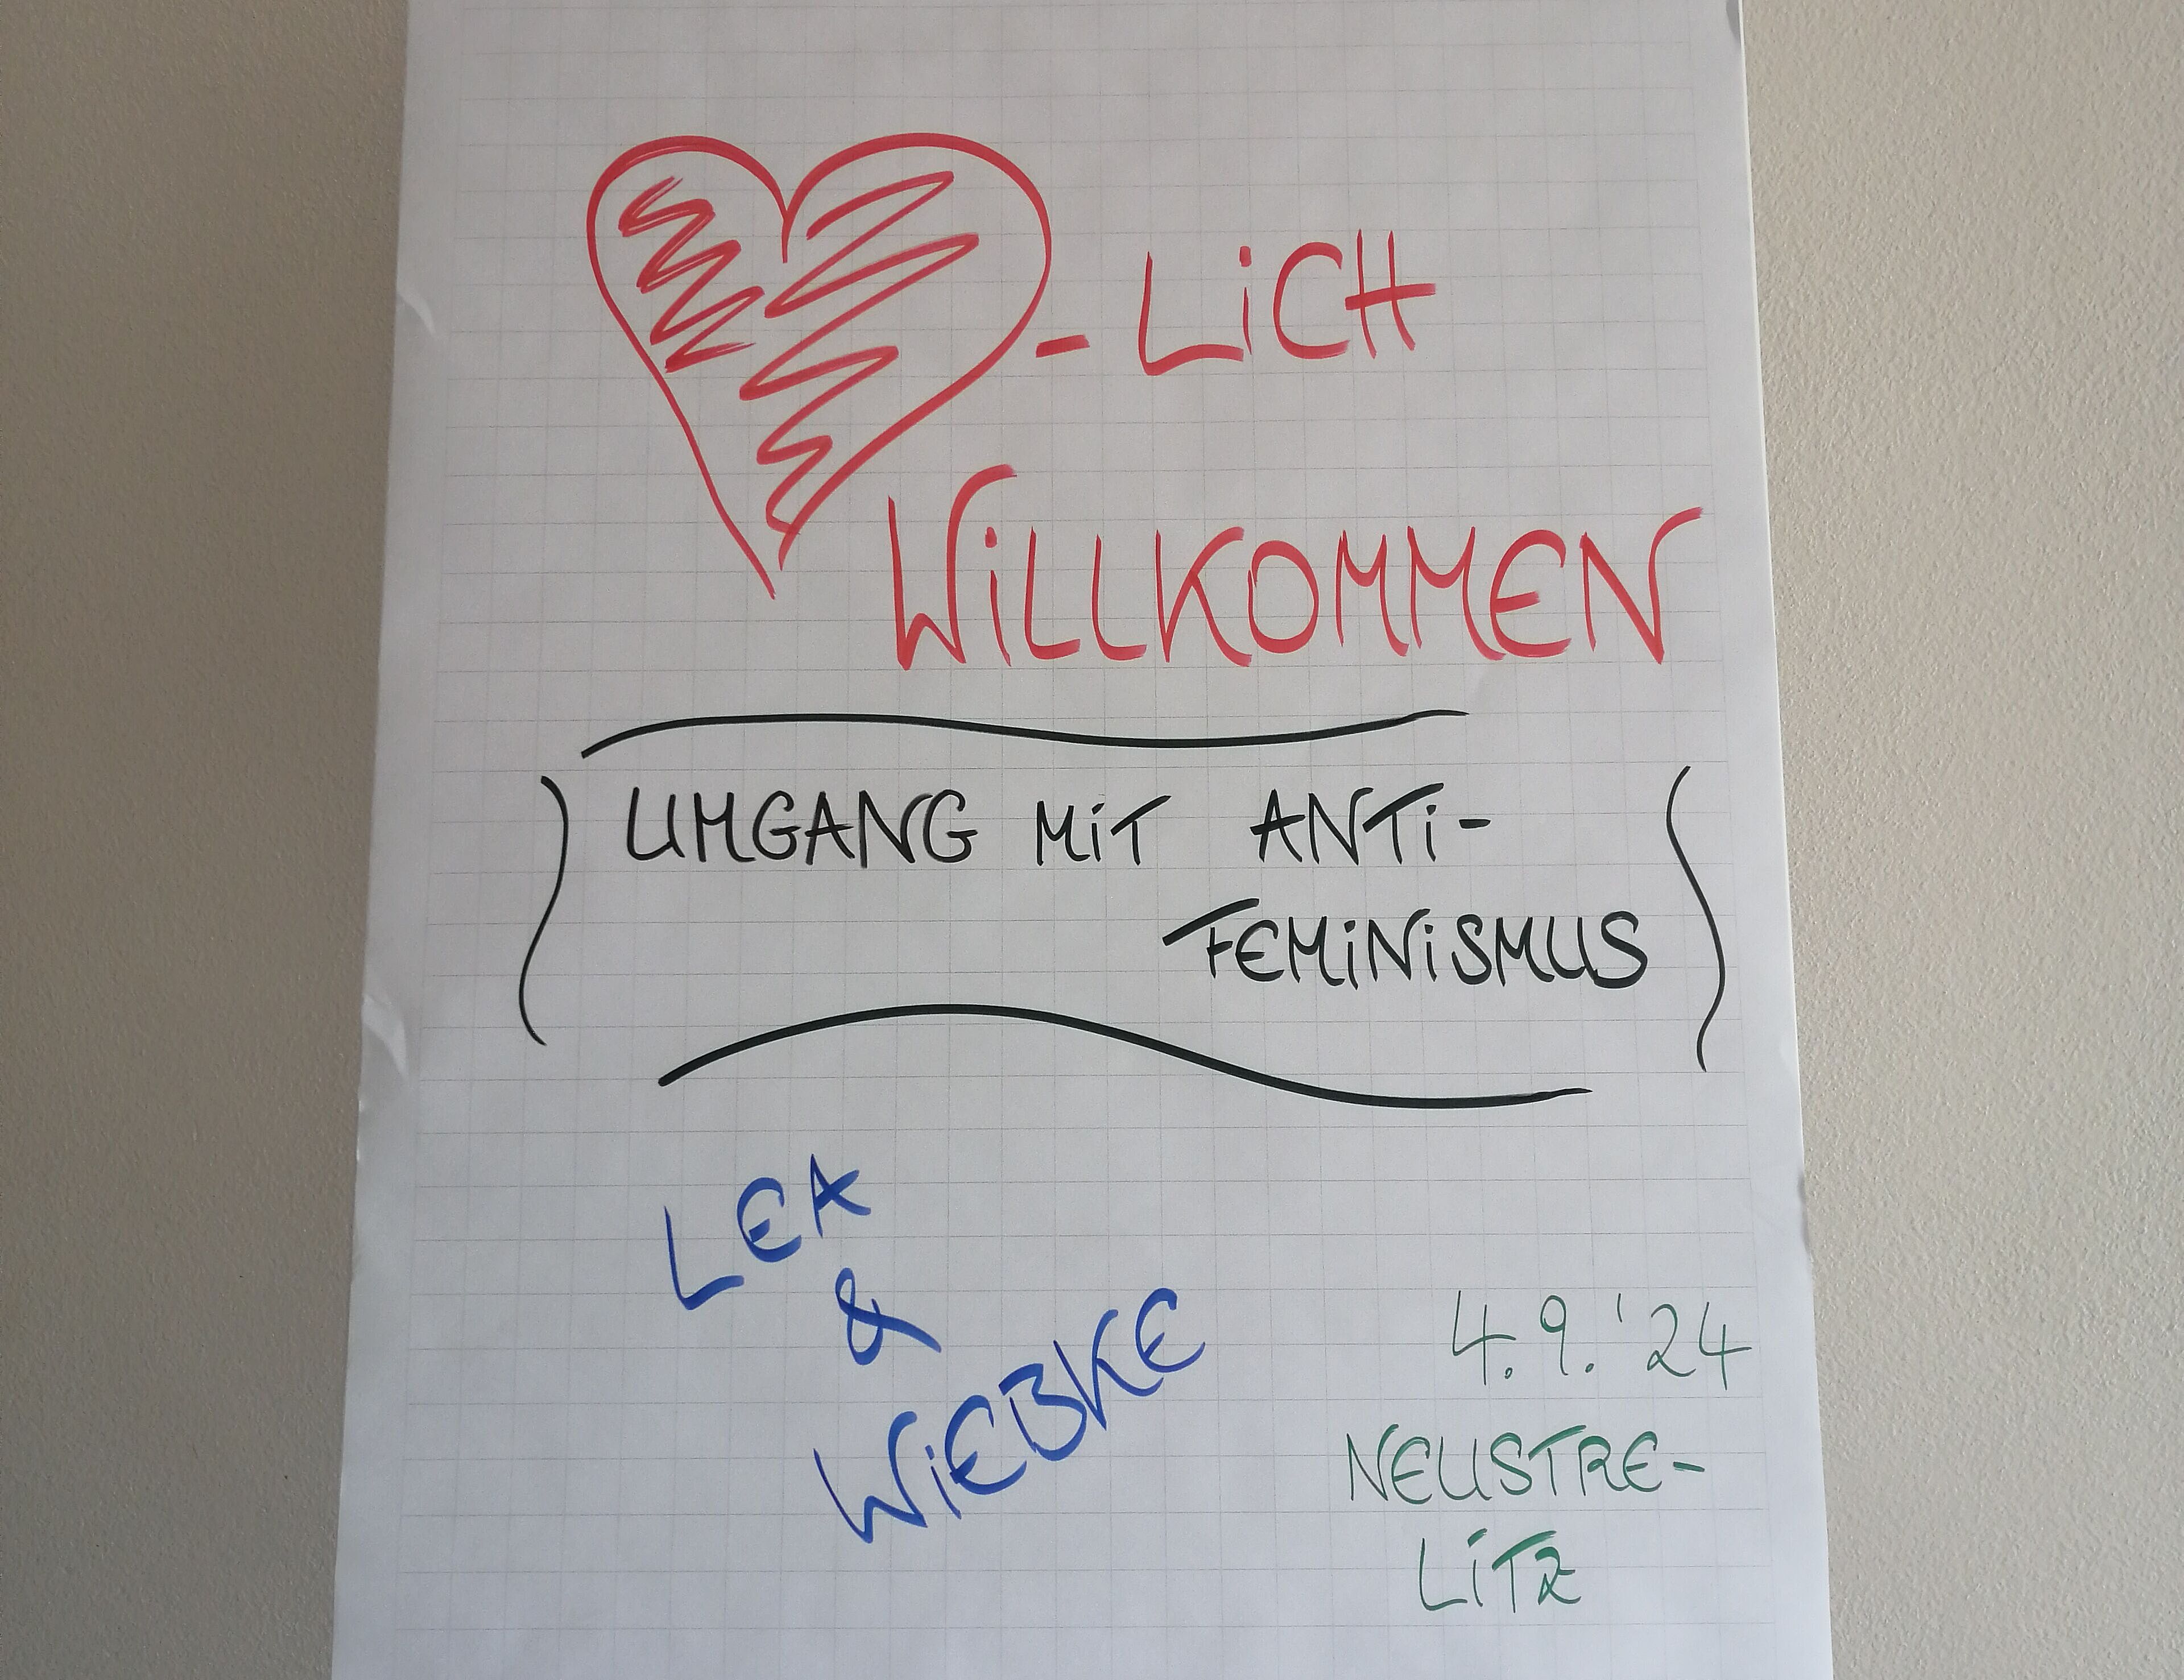 -LiCH
WiLLKOMMEN
UMGANG MiT ANTi-
FEMiNiSMUS
LEA
&
WiEBKE
4.9.'24
NEUSTRE-
LiTZ